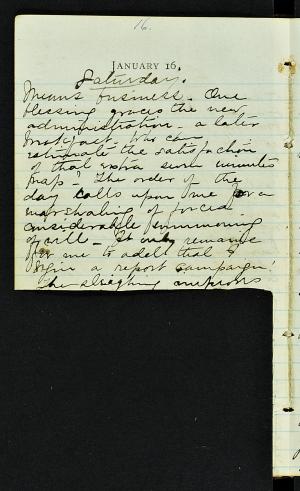 16.
JANUARY 16.
Saturday.
Means business. One
blessing graces the new
administration - a later
breakfast. Who can
estimate the satisfaction
of that extra seven minute
nap! The order of the
day calls upon me for a
marshaling of forces
considerable summoning
of will - It only remains
for me to add that I
begin a report campaign!
The sleighing